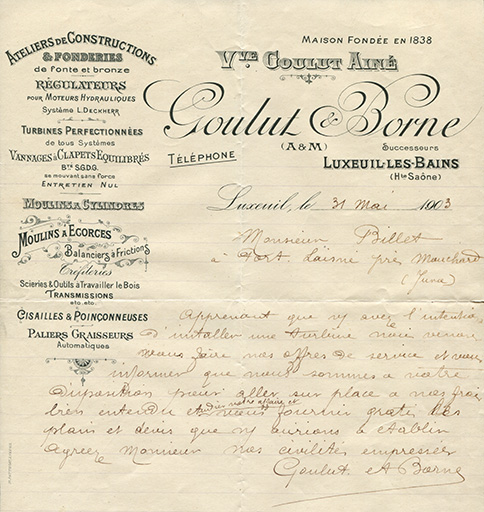 ATELIERS DE CONSTRUCTIONS
& FONDERIES
de fonte et bronze
RÉGULATEURS
POUR MOTEURS HYDRAULIQUES
Système L. DECKHERR
TURBINES PERFECTIONNÉES
de tous Systèmes
VANNAGES à CLAPETS EQUILIBRÉS
Btés S.G.D.G.
se mouvant sans force
ENTRETIEN NUL
MOULINS À CYLINDRES
MOULINS À ECORCES
Balanciers à Frictions
Tréfileries
Scieries & Outils à Travailler le Bois
TRANSMISSIONS
etc. etc.
CISAILLES & POINÇONNEUSES
PALIERS GRAISSEURS
Automatiques
MAISON FONDÉE EN 1838
Vve GOULUT AINÉ
Goulut & Borne
(A & M)
Successeurs
TÉLÉPHONE
LUXEUIL-LES-BAINS
(Hte Saône)
Luxeuil, le 31 Mai 1903
Monsieur Billet
à Port Laisné près Mouchard
(Jura)
Apprenant que vs avez l'intention
d'installer une turbine nous venons
vous faire nos offres de service et vous
informer que nous sommes a votre
disposition pour aller sur place a nos frais
étudier votre affaire, et
bien entendu et vous fournir gratis les
plans et devis que ns aurions a établir
agréez Monsieur nos civilités empressées
Goulut et A Borne